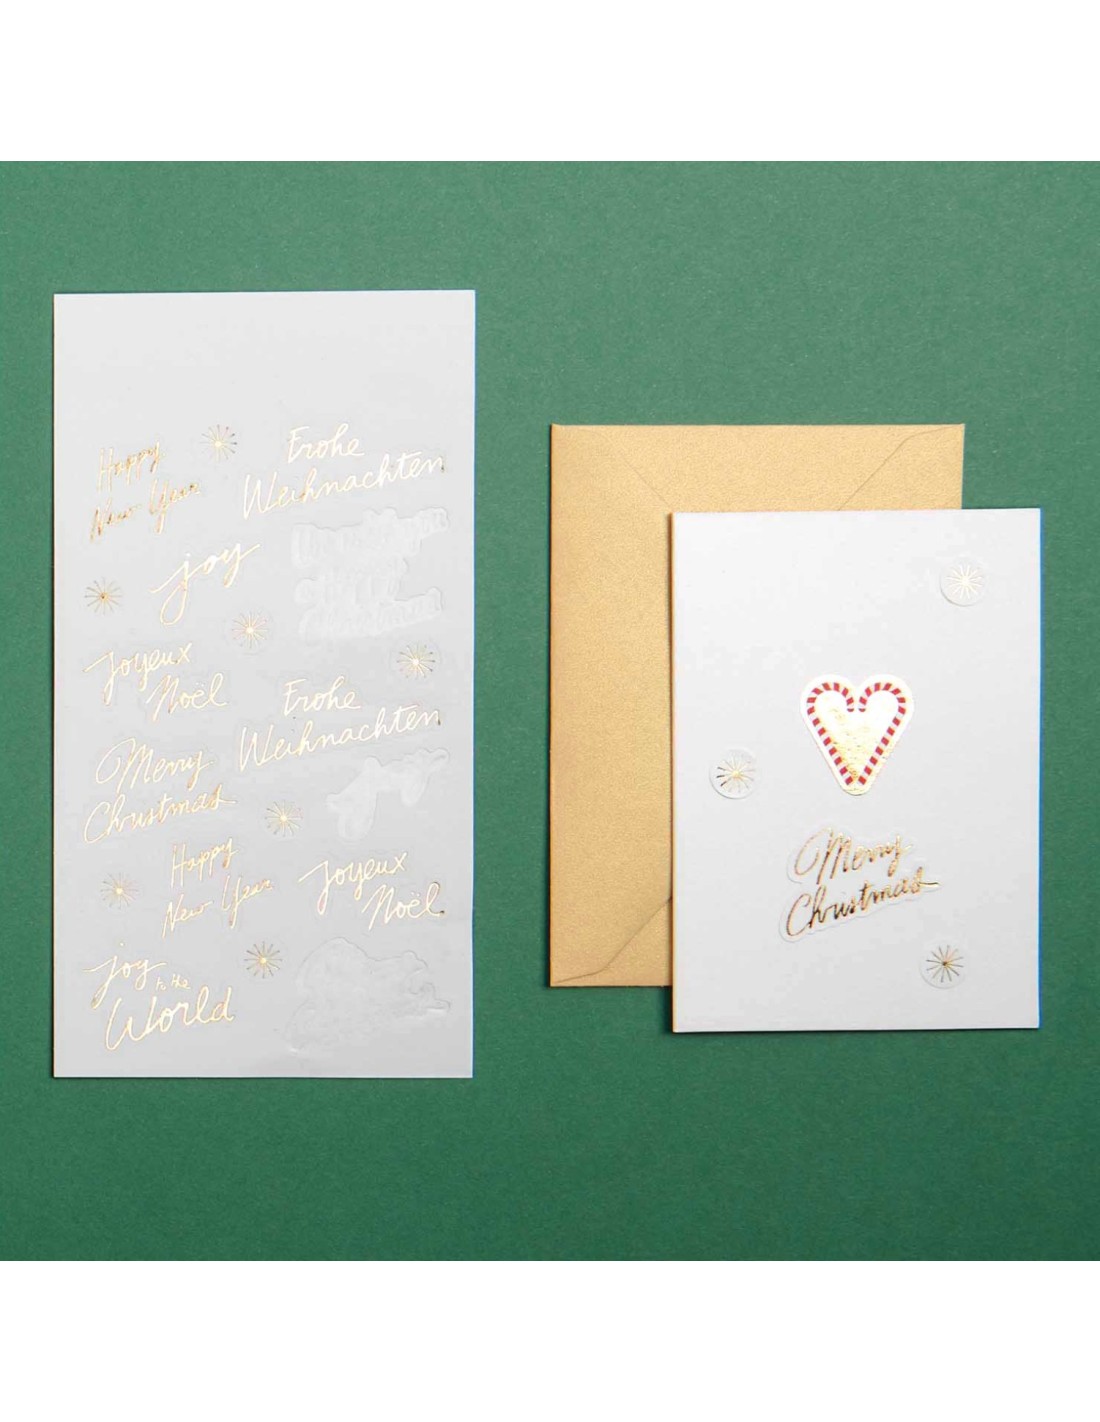 Happy
New Year
Frohe
Weihnachten
joy
Joyeux
Noël
Frohe
Weihnachten
Merry
Christmas
Happy
New Year
Joyeux
Noël
Joy
to the
World
Merry
Christmas